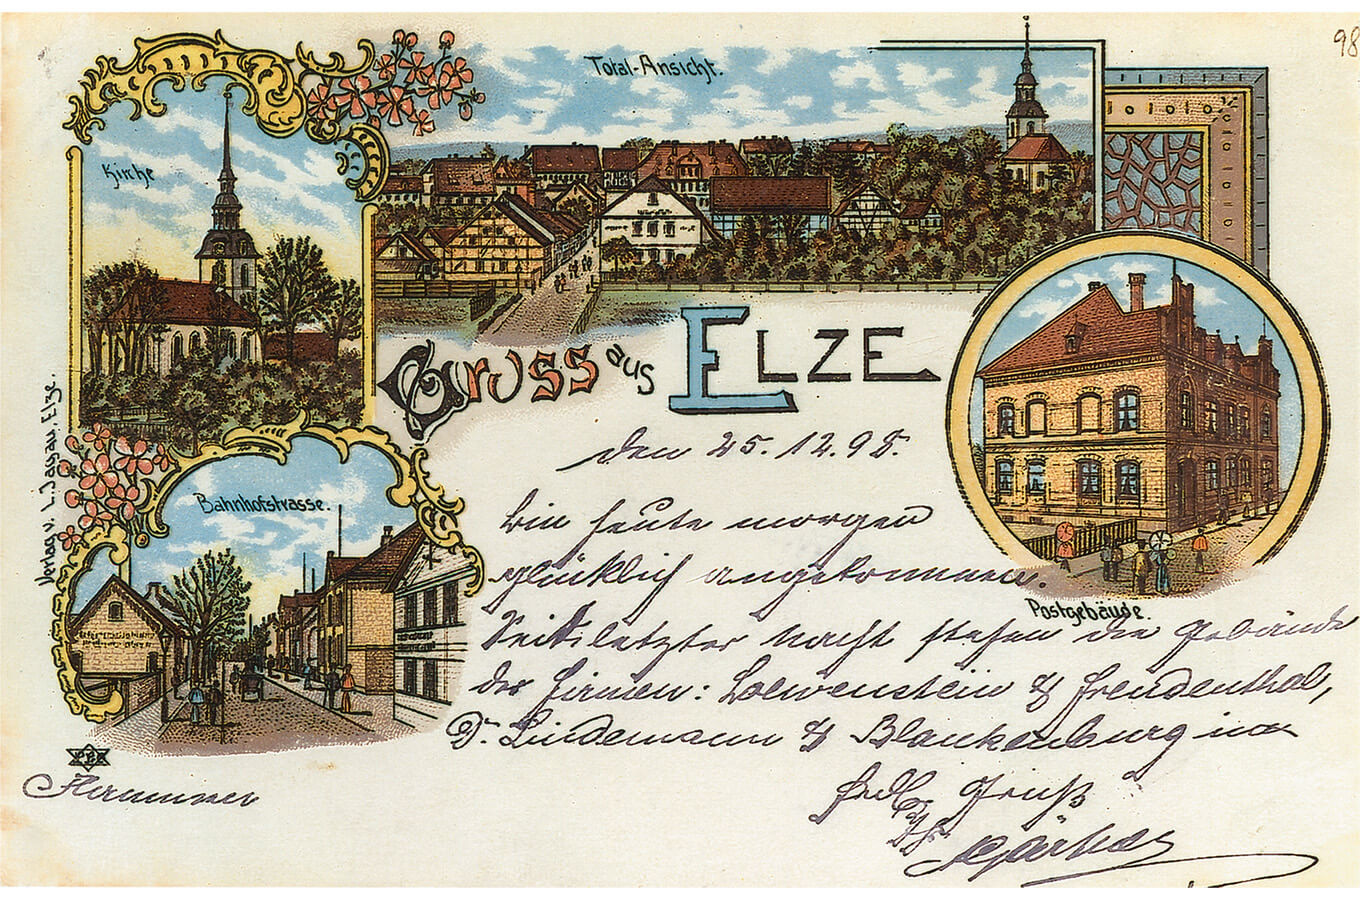 98
Total-Ansicht.
Kirche
Gruss aus ELZE
Verlag v. L. Elze.
Bahnhofstrasse.
Postgebäude.
den 25.12.98.
bin heute morgen
glücklich angekommen.
Seit letzter Nacht stehen die Gebäude
der Firmen: Loewenstein & Freudenthal,
Dr. Lindemann & Blankenburg in
Gruß